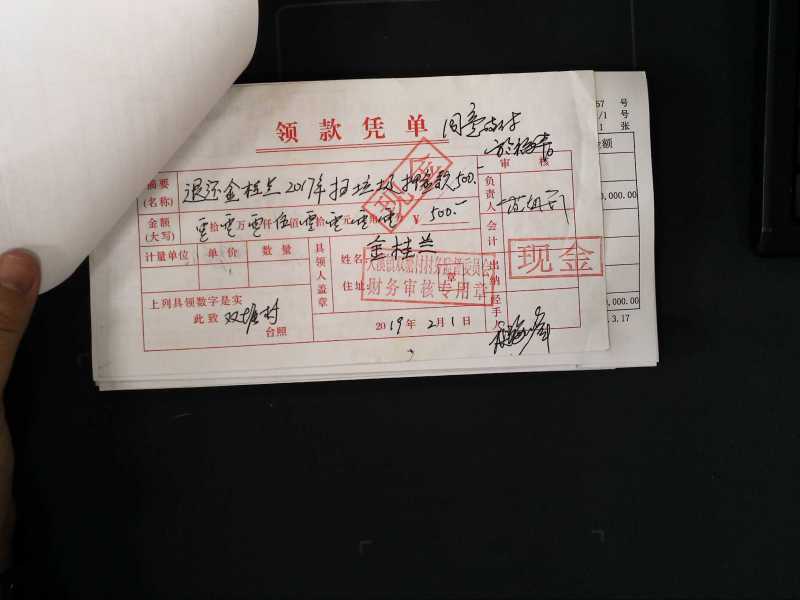 领款凭单
同意支付
审核
摘要
(名称)
退还金桂兰2017年扫垃圾押金款500.-
金额
(大写)
零拾零万零仟伍佰零拾零元零角零分 ¥ 500.-
计量单位 单价 数量
具领人盖章
姓名: 金桂兰 章
住址:
财务审核专用章
上列具领数字是实
此致 双塘村
台照
2019年2月1日
负责人
会计
出纳
经手人
现金
现金
57 号
/1 号
1 张
金额
0,000.00
0,000.00
.3.17